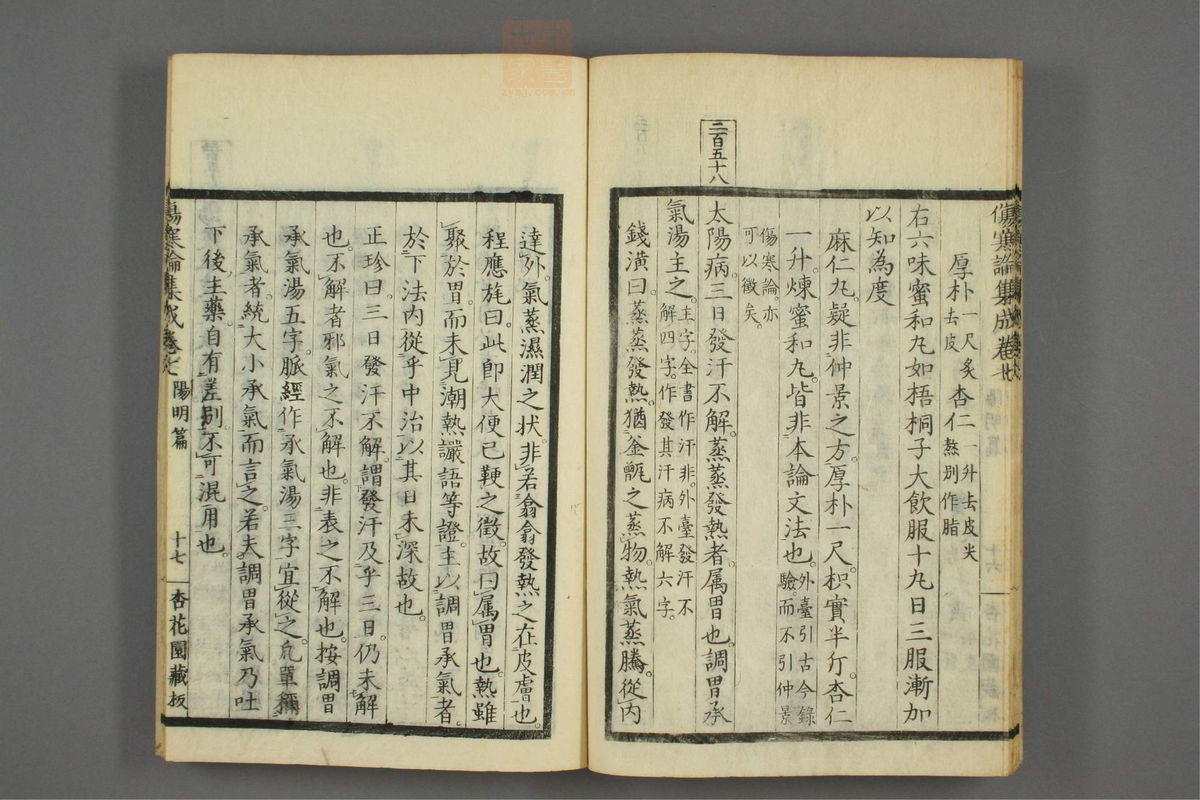 傷寒論集成卷七
厚朴一尺炙去皮 杏仁一升去皮尖熬別作脂
右六味蜜和丸如梧桐子大飲服十丸日三服漸加
以知為度
麻仁丸。疑非仲景之方。厚朴一尺。枳實半斤。杏仁
一升。煉蜜和丸。皆非本論文法也。外臺引古今錄
驗。而不引仲景
傷寒論。亦
可以徵矣。
二百五十八
太陽病。三日發汗不解。蒸蒸發熱者。属胃也。調胃承
氣湯主之。主字。全書作汗非。外臺發汗不
解四字。作發其汗病不解六字。
錢潢曰。蒸蒸發熱。猶釜甑之蒸物。熱氣蒸騰。從內
達外。氣蒸濕潤之狀。非若翕翕發熱之在皮膚也。
程應旄曰。此即大便已鞕之徵。故曰属胃也。熱雖
聚於胃。而未見潮熱讝語等證。主以調胃承氣者。
於下法內從乎中治。以其日未深故也。
正珍曰。三日發汗不解。謂發汗及乎三日。仍未解
也。不解者邪氣之不解也。非表之不解也。按調胃
承氣湯五字。脈經作承氣湯三字。宜從之。凡單稱
承氣者。統大小承氣而言之。若夫調胃承氣。乃吐
下後主藥。自有差別。不可混用也。
傷寒論集成卷七 陽明篇 十七 杏花園藏板
zysj.com.cn